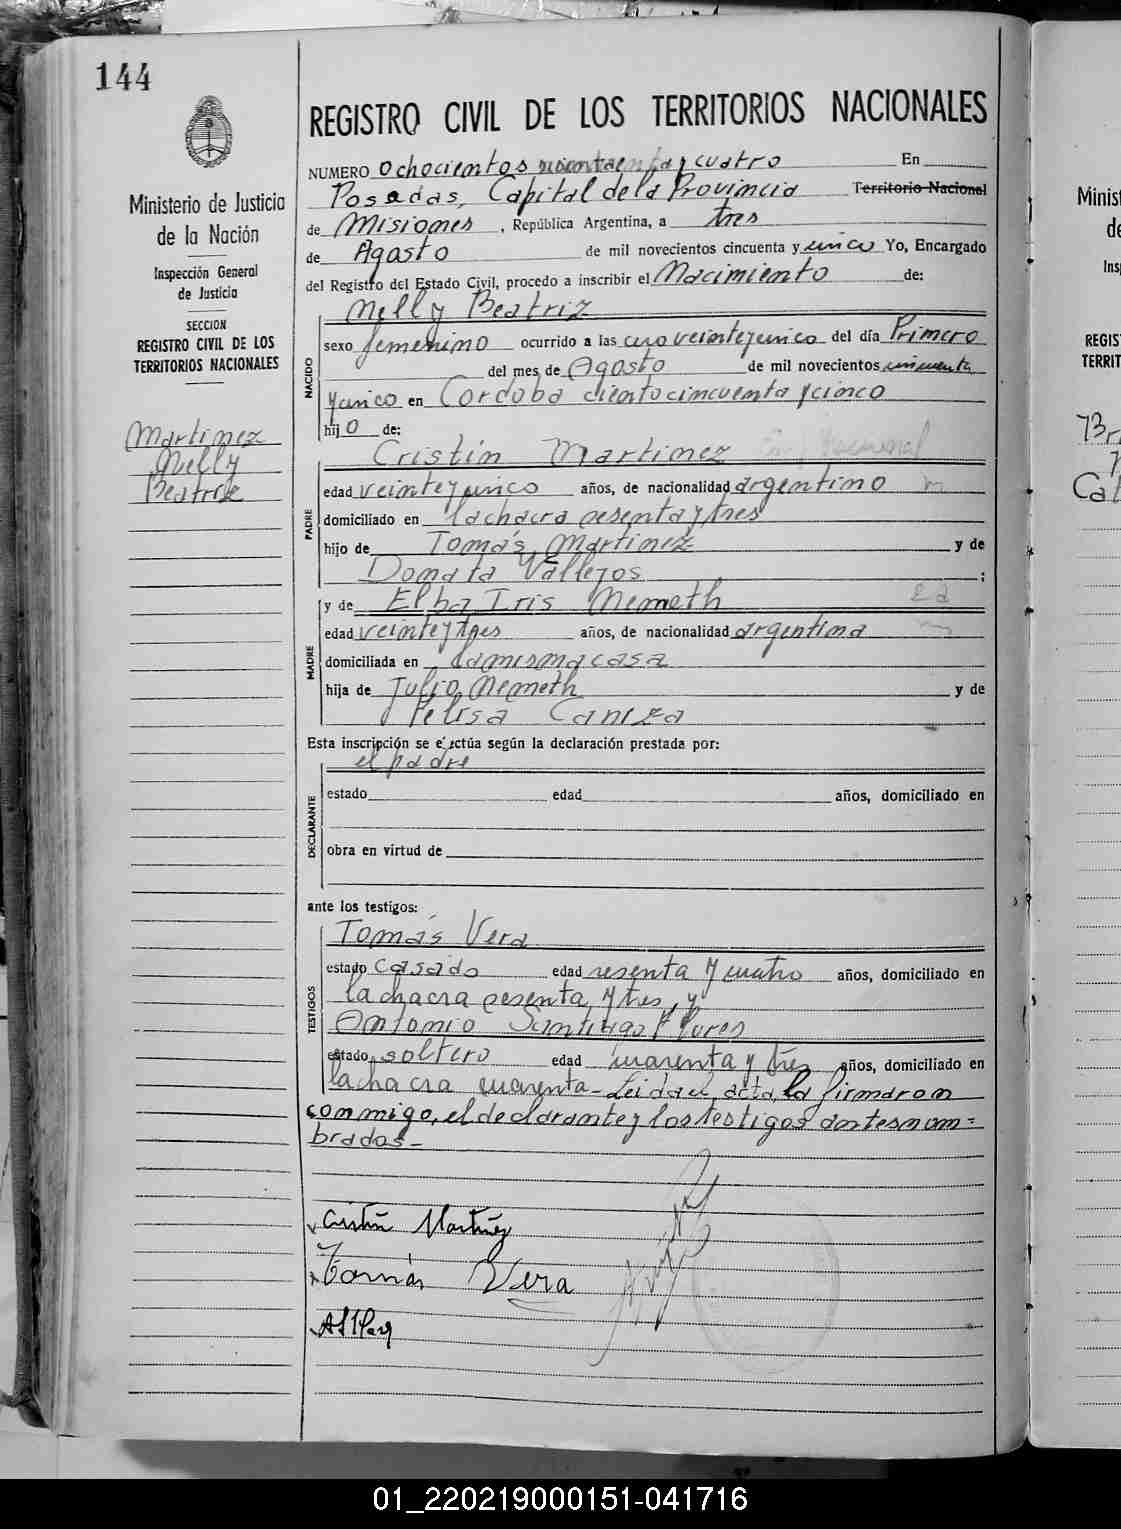 144
REGISTRO CIVIL DE LOS TERRITORIOS NACIONALES
NUMERO Ochocientos y cuatro En
Posadas, Capital de la Provincia Territorio Nacional
de Misiones, República Argentina, a tres
de Agosto de mil novecientos cincuenta y unico Yo, Encargado
del Registro del Estado Civil, procedo a inscribir el Nacimiento de:
Ministerio de Justicia
de la Nación
Inspección General
de Justicia
SECCION
REGISTRO CIVIL DE LOS
TERRITORIOS NACIONALES
Martinez
Nelly
Beatriz
NACIDO
Nelly Beatriz
sexo femenino ocurrido a las cero veinteyunico del día Primero
del mes de Agosto de mil novecientos cincuenta
yunico en Cordoba ciento cincuenta y cinco
hijo de:
PADRE
Cristín Martinez
edad veinteyunico años, de nacionalidad argentino
domiciliado en la chacra sesenta y tres
hijo de Tomás Martinez y de
Donata Vallejos ;
MADRE
y de Elba Iris Nemeth
edad veinteytres años, de nacionalidad argentina
domiciliada en la misma casa
hija de Julio Nemeth y de
Felisa Caniza
Esta inscripción se efectúa según la declaración prestada por:
el padre
DECLARANTE
estado edad años, domiciliado en
obra en virtud de
ante los testigos:
TESTIGOS
Tomás Vera
estado casado edad sesenta y cuatro años, domiciliado en
la chacra sesenta y tres, y
Antonio Santiago Flores
estado soltero edad cuarenta y tres años, domiciliado en
la chacra cuarenta - Leida el acta, la firmaron
conmigo, el declarante y los testigos antes nom=
brados -
Cristín Martínez
Tomás Vera
01_220219000151-041716
Minist
de
Ins
REGIS
TERRIT